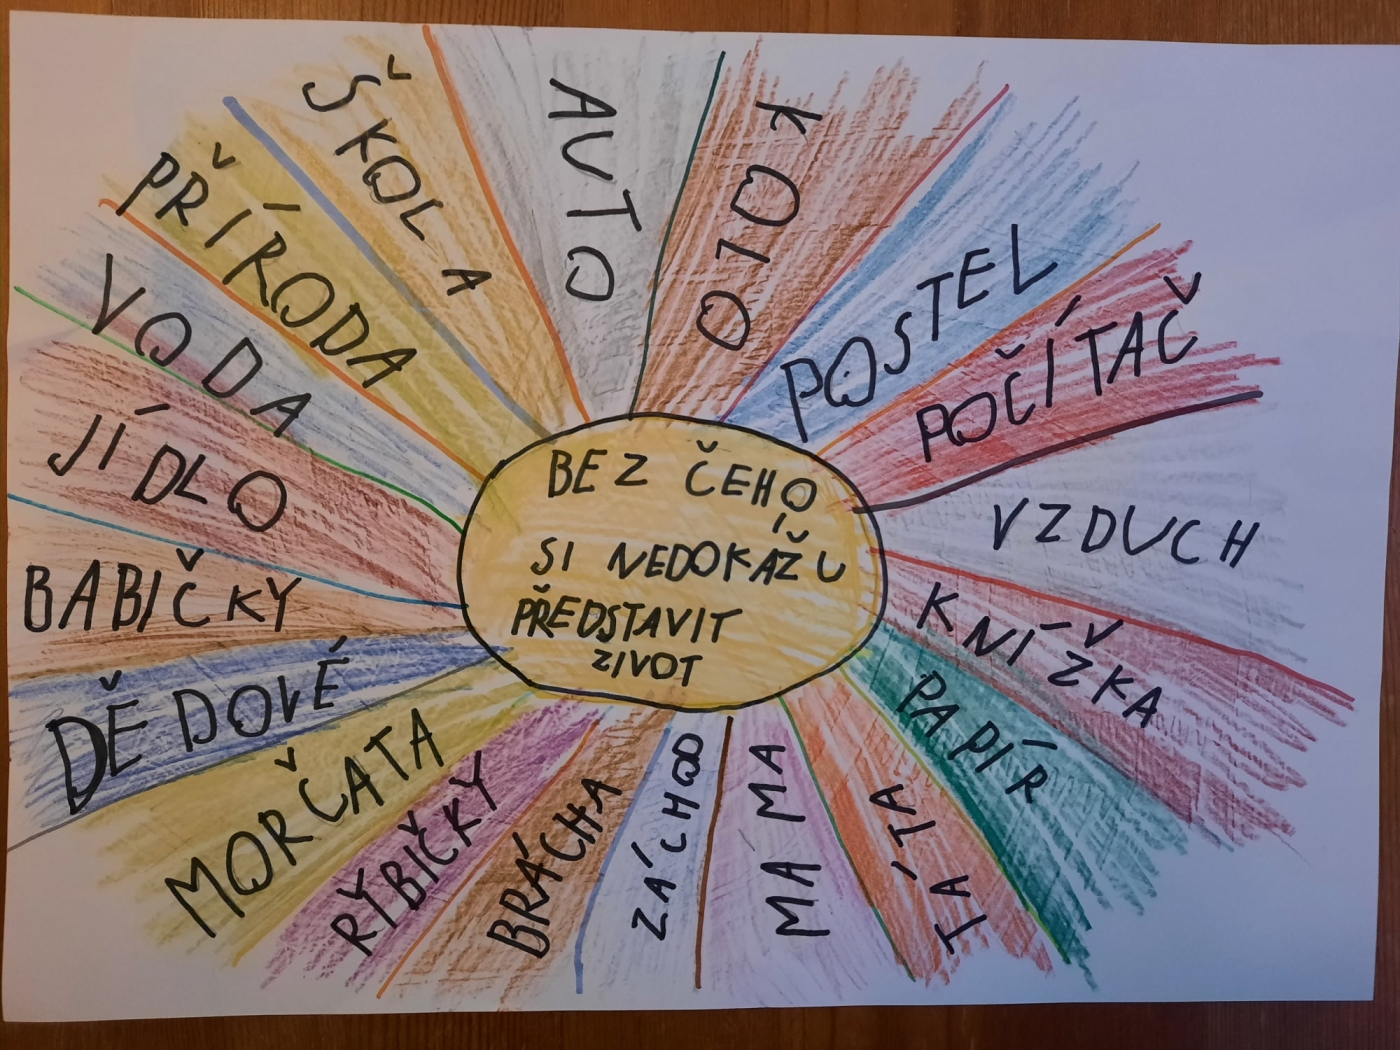 BEZ ČEHO
SI NEDOKÁŽU
PŘEDSTAVIT
ZIVOT
AUTO
KOLO
POSTEL
POČÍTAČ
VZDUCH
KNÍŽKA
PAPÍR
TÁTA
MAMA
ZÁCHOD
BRÁCHA
RYBIČKY
MORČATA
DĚDOVÉ
BABIČKY
JÍDLO
VODA
PŘÍRODA
ŠKOLA